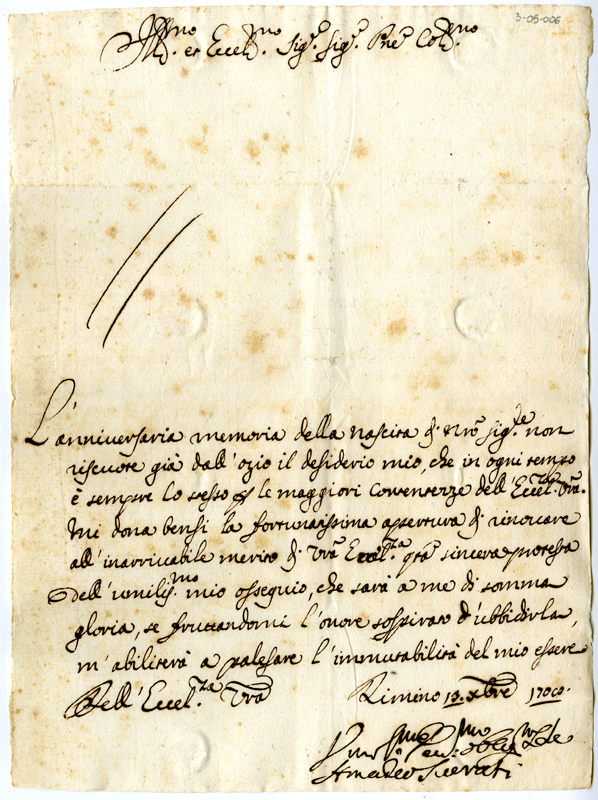 3-05-006
Ill.mo et Eccel.mo Sig.r Sig.r Pne Col.mo
L'anniversaria memoria della nascita di Nro Sig.re non
riscuote già dall'ozio il desiderio mio, che in ogni tempo
è sempre lo stesso p le maggiori contentezze dell'Eccel.za Vra.
Mi dona bensì la fortunatissima apertura di rinovare
all'inarrivabile merito di Vra Eccel.za qta sincera protesta
dell'umiliss.mo mio ossequio, che sarà a me di somma
gloria, se fruttandomi l'onore sospirato d'ubbidirla,
m'abiliterà a palesare l'immutabilità del mio essere
Dell'Eccel.za Vra Rimino 18. Xbre
Amadeo